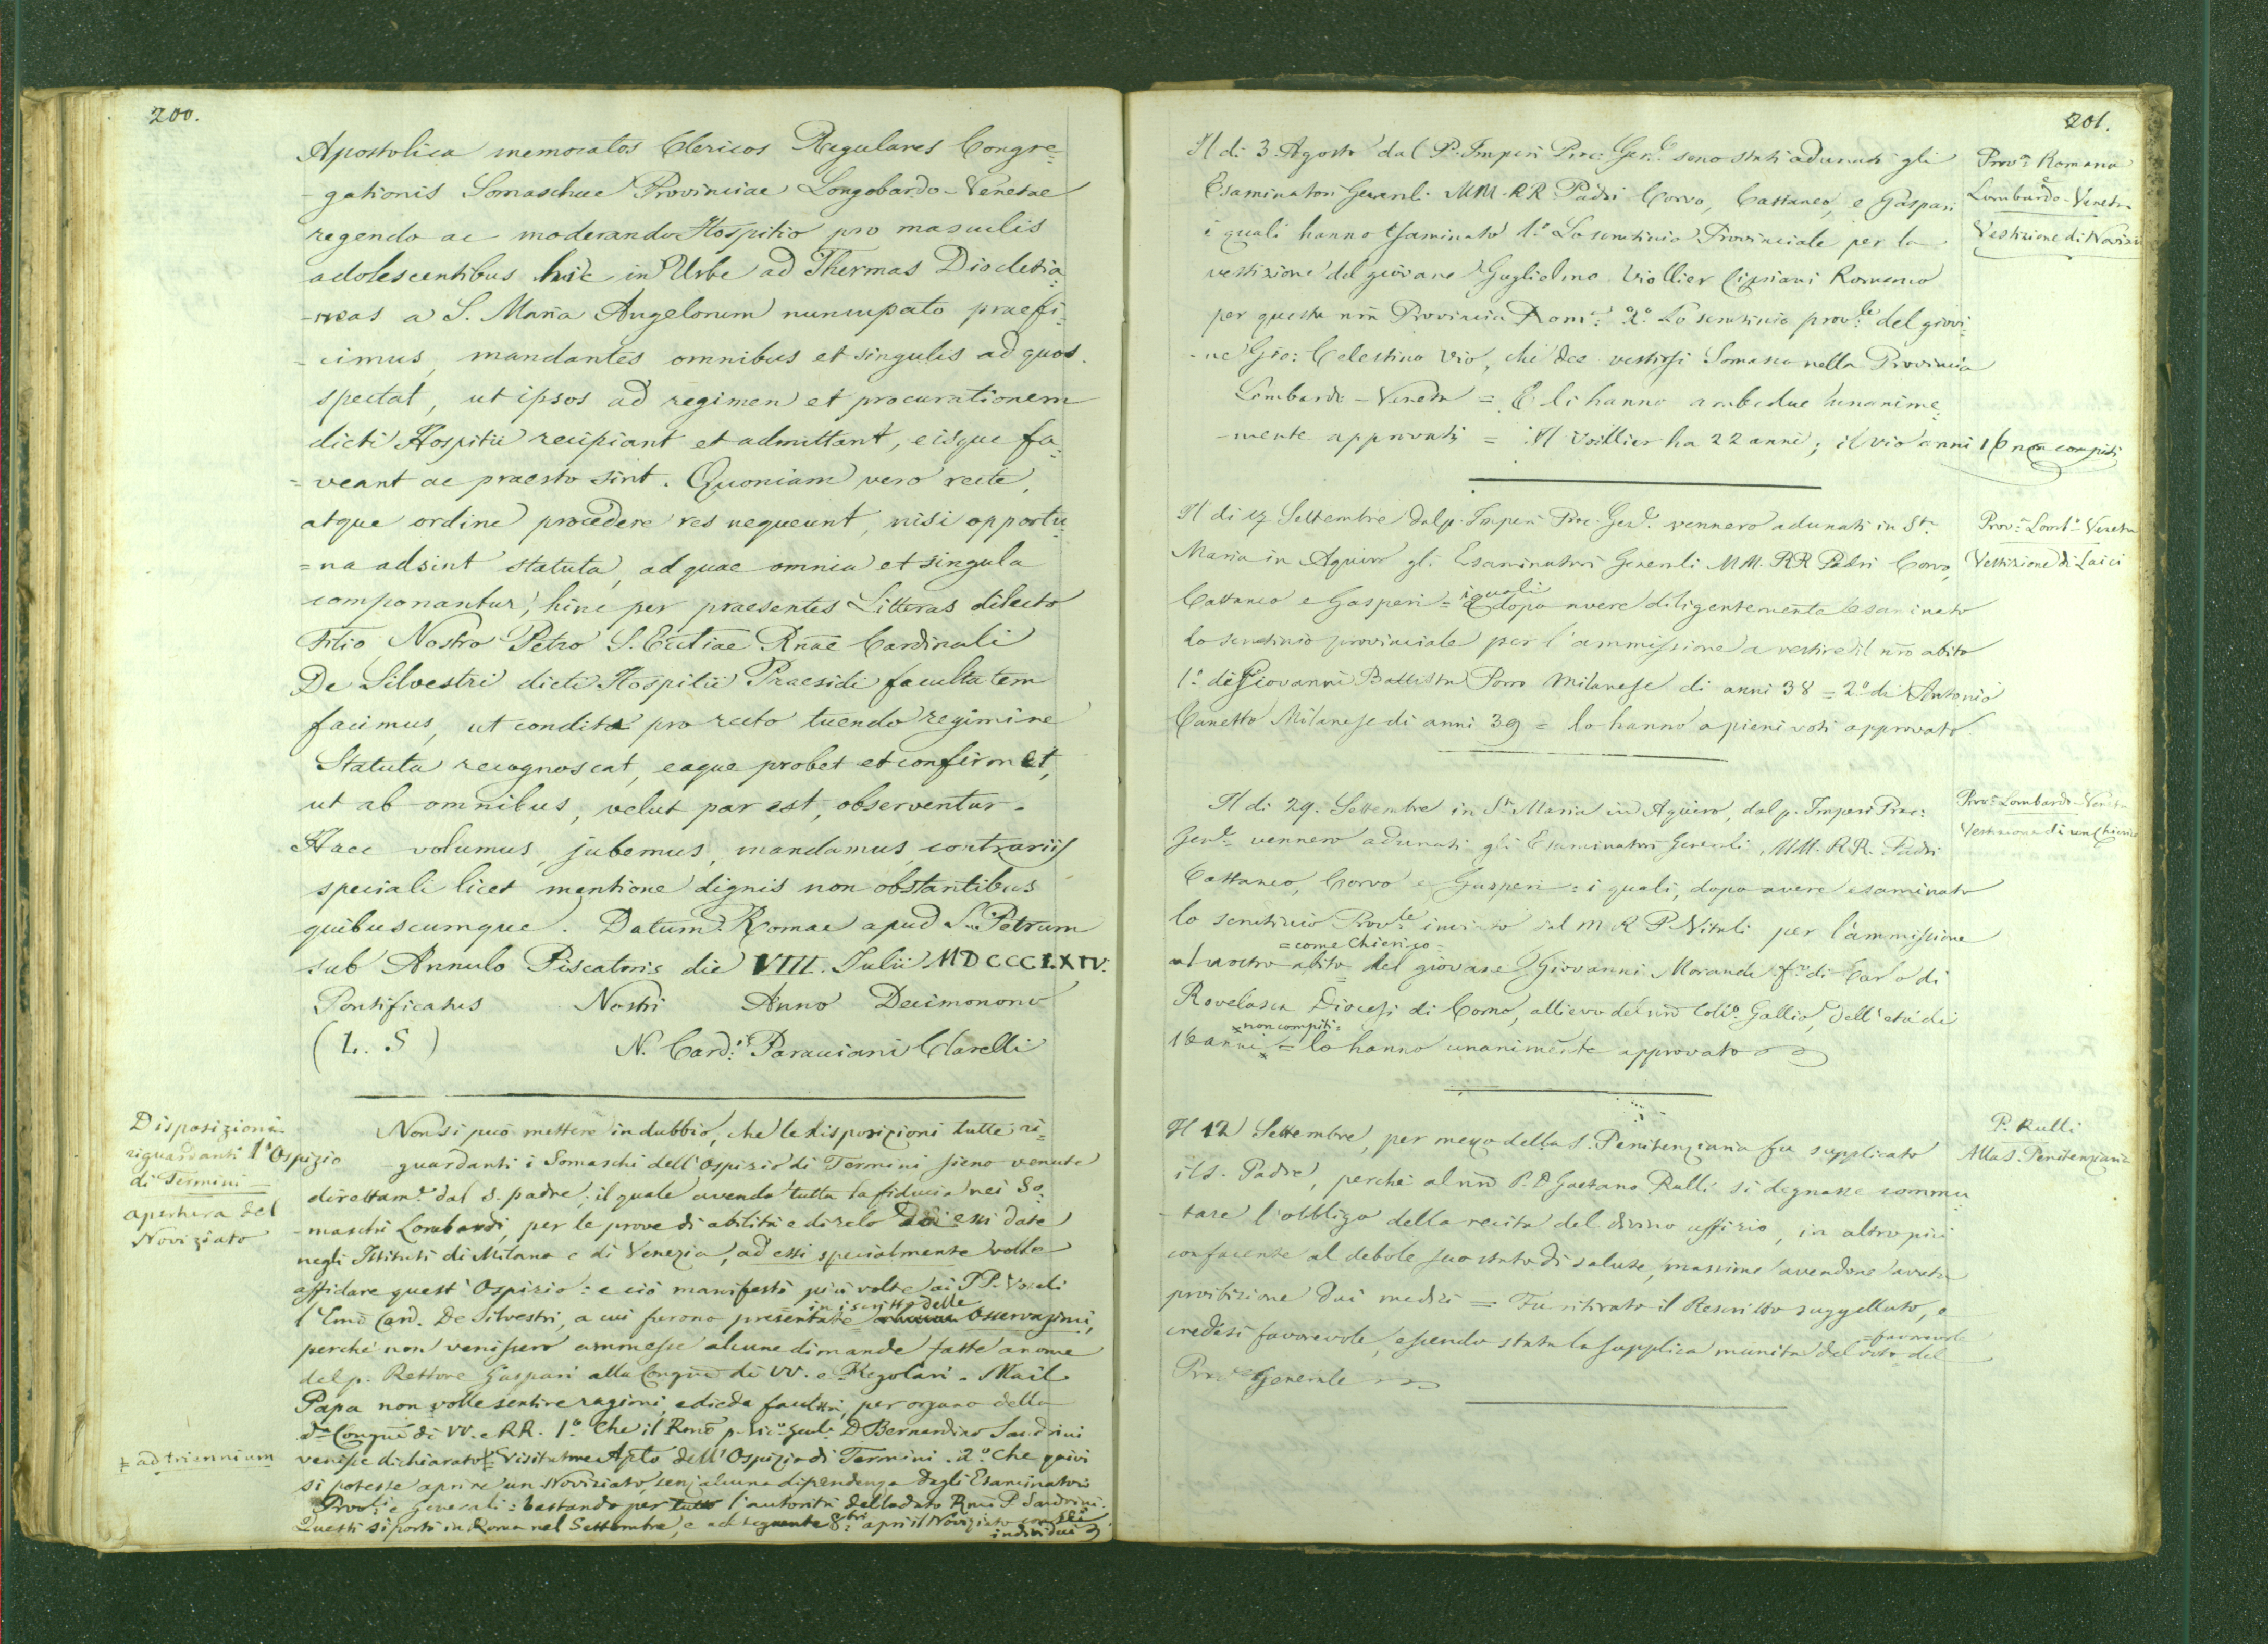 200.
Apostolica memoratos Clericos Regulares Congre=
-gationis Somaschae Provinciae Longobardo-Venetae
regendo ac moderando Hospitio pro masculis
adolescentibus hic in Urbe ad Thermas Diocletia=
-nas a S. Maria Angelorum nuncupato praefi=
-cimus, mandantes omnibus et singulis ad quos
spectat, ut ipsos ad regimen et procurationem
dicti Hospitii recipiant et admittant, eisque fa=
=veant ac praesto sint. Quoniam vero recte,
atque ordine procedere res nequeunt, nisi opportu=
=na adsint statuta, ad quae omnia et singula
componantur, hinc per praesentes Litteras dilecto
Filio Nostro Petro S. Ecctiae Rnae Cardinali
De Silvestri dicti Hospitii Praesidi facultatem
facimus, ut condita pro recto tuendo regimine
Statuta recognoscat, eaque probet et confirmet,
ut ab omnibus, velut par est, observentur.
Haec volumus, jubemus, mandamus, contrariis
speciali licet mentione dignis non obstantibus
quibuscumque. Datum Romae apud S. Petrum
sub Annulo Piscatoris die VIII. Julii MDCCCLXIV.
Pontificatus Nostri Anno Decimonono
(L. S) N. Card. Paracciani Clarelli
Disposizioni
riguardanti l'Ospizio
di Termini
apertura del
Noviziato
Non si può mettere in dubbio, che le disposizioni tutte ri=
-guardanti i Somaschi dell'Ospizio di Termini sieno venute
direttam.e dal S. padre, il quale avendo tutta la fiducia nei So=
-maschi Lombardi, per le prove di abilità e di zelo da essi date
negli Istituti di Milano e di Venezia, ad essi specialmente volle
affidare quest'Ospizio: e ciò manifestò più volte ai PP. Vocali
l'Emo Card. De Silvestri, a cui furono presentate in iscritto delle Osservazioni,
perché non venissero ammesse alcune dimande fatte a nome
del p. Rettore Gaspari alla Congne di VV. e Regolari. Ma il
Papa non volle sentire ragioni, e diede facoltà, per organo della
da Congne di VV. e RR. 1.° Che il Rmo p. Vic.° Genle D. Bernardino Sandrini
= ad triennium
venisse dichiarato Visitatore Aplo dell'Ospizio di Termini. 2.° Che quivi
si potesse aprire un Noviziato, senz'alcuna dipendenza dagli Esaminatori
Prov.li e generali: bastando per tutto l'autorità del lodato Rmo P. Sandrini.
Questi si portò in Roma nel Settembre, e nel seguente 8bre aprì il Noviziato con sei
individui
201.
Il dì 3. Agosto dal P. Imperi Proc. Gen.le sono stati adunati gli
Esaminatori Generali MM. RR Padri Corvo, Cattaneo, e Gaspari
i quali hanno esaminato 1.° Lo scrutinio Provinciale per la
vestizione del giovane Guglielmo Viollier Cipriani Romano
per questa nra Provincia Rom.a 2.° Lo scrutinio prov.le del giovi=
-ne Gio: Celestino Vio, che dee vestirsi Somasco nella Provincia
Lombardo-Veneta = E li hanno ambedue unanime=
-mente approvati = Il Voillier ha 22 anni; il Vio anni 16 non compiti
Prov.a Romana
e
Lombardo-Veneta
Vestizione di Novizii
Il dì 17 Settembre dal p. Imperi Proc. Gen.le vennero adunati in S.ta
Maria in Aquiro gli Esaminatori Generali MM. RR Padri Corvo,
Cattaneo e Gasperi = i quali dopo avere diligentemente esaminato
lo scrutinio provinciale per l'ammissione a vestire il nro abito
1.° di Giovanni Battista Porro Milanese di anni 38 = 2.° di Antonio
Canetta Milanese di anni 39 = lo hanno a pieni voti approvato.
Prov.a Lomb.o-Veneta
Vestizione di Laici
Il dì 29. Settembre in S.ta Maria in Aquiro, dal p. Imperi Proc:
Gen.le vennero adunati gli Esaminatori Generali MM. RR. Padri
Cattaneo, Corvo e Gasperi: i quali, dopo avere esaminato
lo scrutinio Prov.le inviato dal M R P. Vitali per l'ammissione
= come Chierico =
al nostro abito del giovane Giovanni Morandi f.o di Carlo di
Rovelasca Diocesi di Como, allievo del nro Coll.o Gallio, dell'età di
non compiti =
16 anni = lo hanno unanimente approvato
Prov.a Lombardo-Veneta
Vestizione di un Chierico
Il 12 Settembre, per mezzo della S. Penitenziaria fu supplicato
il S. Padre, perché al nro P. D Gaetano Rulli si degnasse commu=
-tare l'obbligo della recita del divino uffizio, in altro più
confacente al debole suo stato di salute, massime avendone avuta
proibizione dai medici = Fu ritirato il Rescritto suggellato, e
credesi favorevole, essendo stata la supplica munita del voto =favorevole del
Proc.re Generale
P. Rulli
Alla S. Penitenziaria